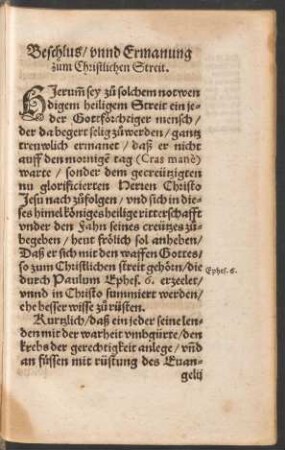 Beschlus/ vnnd Ermanung
zum Christlichen Streit.
HJerum̃ sey zů solchem notwen
digem heiligem Streit ein je-
der Gottförchtiger mensch/
der da begert selig zůwerden/ gantz
treuwlich ermanet/ daß er nicht
auff den morninge tag (Cras manè)
warte/ sonder dem gecreützigten
nu glorificierten Herren Christo
Jesu nach zůfolgen/ vnd sich in die-
ses himelköniges heilige ritterschafft
vnder den Fahn seines creützes zů-
begeben/ heut frölich sol anheben/
Daß er sich mit den waffen Gottes/
so zum Christlichen streit gehörn/ die
durch Paulum Ephes. 6. erzeelet/
vnnd in Christo summiert werden/
ehe besser wisse zů rüsten.
Ephes. 6.
Kurtzlich/ daß ein jeder seine len-
den mit der warheit vmbgürte/ den
krebs der gerechtigkeit anlege/ vñ
an füssen mit rüstung des Euan-
gelij